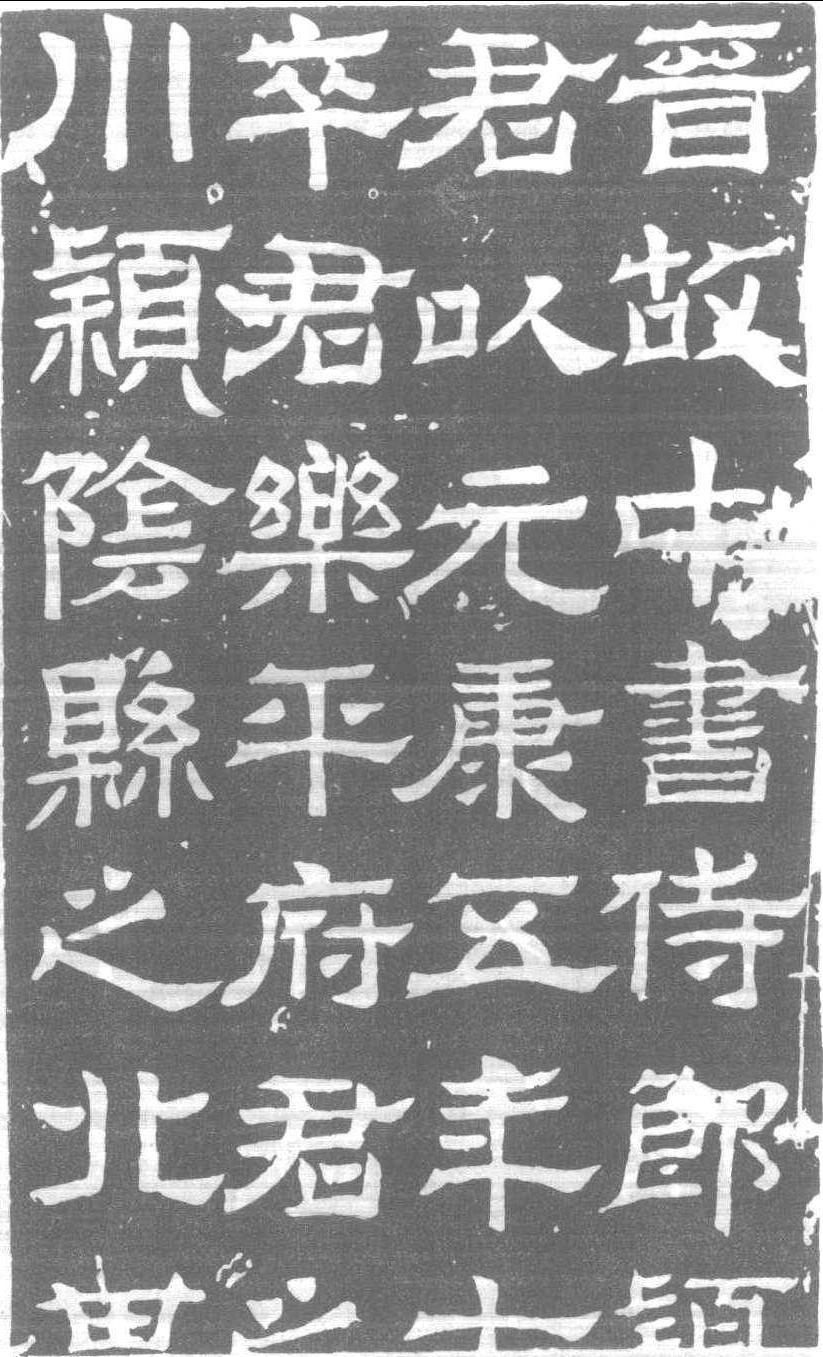 晉故中書侍郎潁
君以元康五年
卒君樂平府君之
川潁陰縣之北